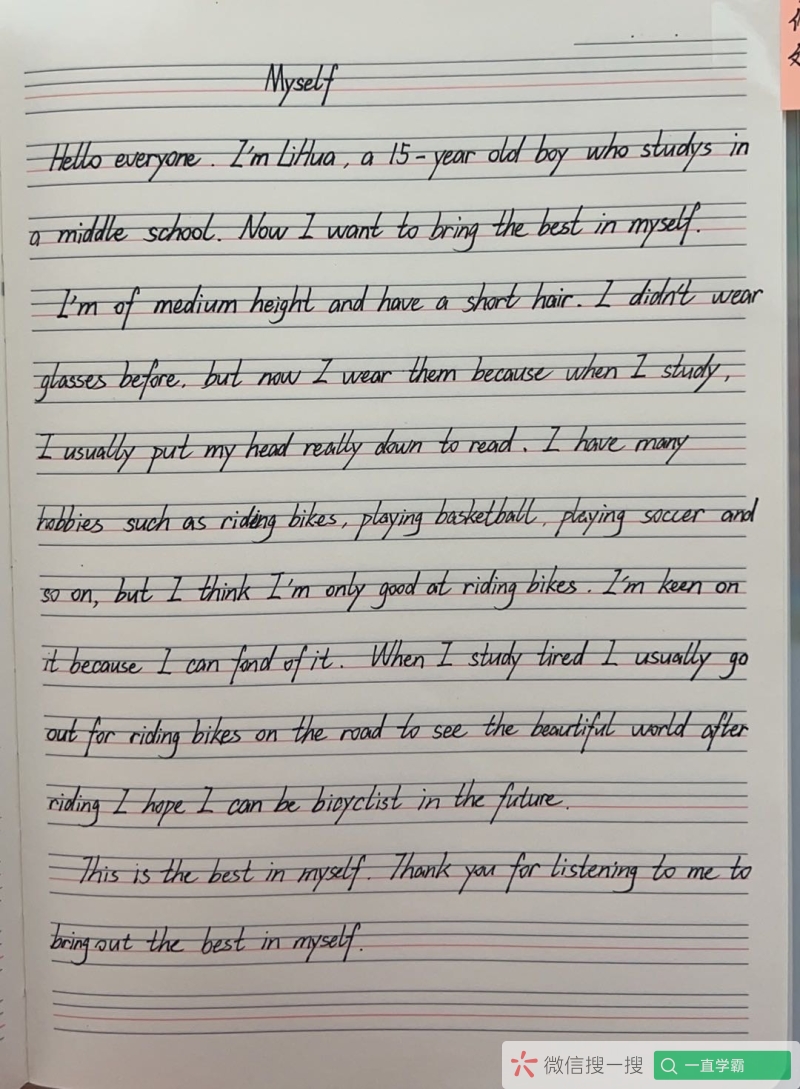 Myself
Hello everyone. I'm LiHua, a 15-year old boy who studys in
a middle school. Now I want to bring the best in myself.
I'm of medium height and have a short hair. I didn't wear
glasses before. but now I wear them because when I study,
I usually put my head really down to read. I have many
hobbies such as riding bikes, playing basketball, playing soccer and
so on, but I think I'm only good at riding bikes. I'm keen on
it because I can fond of it. When I study tired I usually go
out for riding bikes on the road to see the beautiful world after
riding I hope I can be bicyclist in the future.
This is the best in myself. Thank you for listening to me to
bring out the best in myself.
微信搜一搜
一直学霸